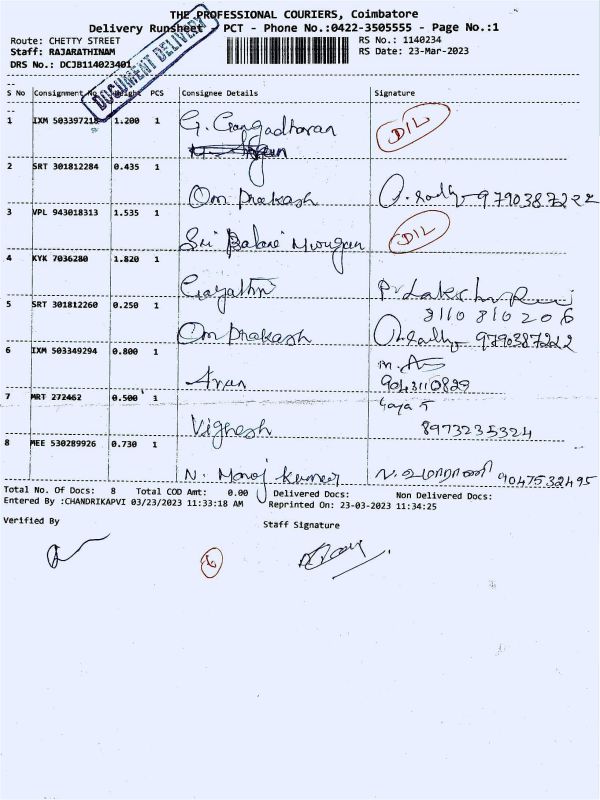 THE PROFESSIONAL COURIERS, Coimbatore
Delivery Runsheet - PCT - Phone No.:0422-3505555 - Page No.:1
Route: CHETTY STREET RS No.: 1140234
Staff: RAJARATHINAM RS Date: 23-Mar-2023
DRS No.: DCJB114023401
DOCUMENT DELIVERY
S No Consignment No Weight PCS Consignee Details Signature
1 IXM 503397218 1.200 1 G. Gangadharan D/L
2 SRT 301812284 0.435 1 Om Prakash 9790387222
3 VPL 943018313 1.535 1 Sri Balaji Murugan D/L
4 KYK 7036280 1.820 1 Gayathri
8110810206
5 SRT 301812260 0.250 1 Om Prakash 9790387222
6 IXM 503349294 0.800 1 Arun 9043110829
7 MRT 272462 0.500 1 Vignesh Jaya T
8973235324
8 MEE 530289926 0.730 1 N. Manoj Kumar N. உமாராணி 9047532495
Total No. Of Docs: 8 Total COD Amt: 0.00 Delivered Docs: Non Delivered Docs:
Entered By :CHANDRIKAPVI 03/23/2023 11:33:18 AM Reprinted On: 23-03-2023 11:34:25
Verified By Staff Signature